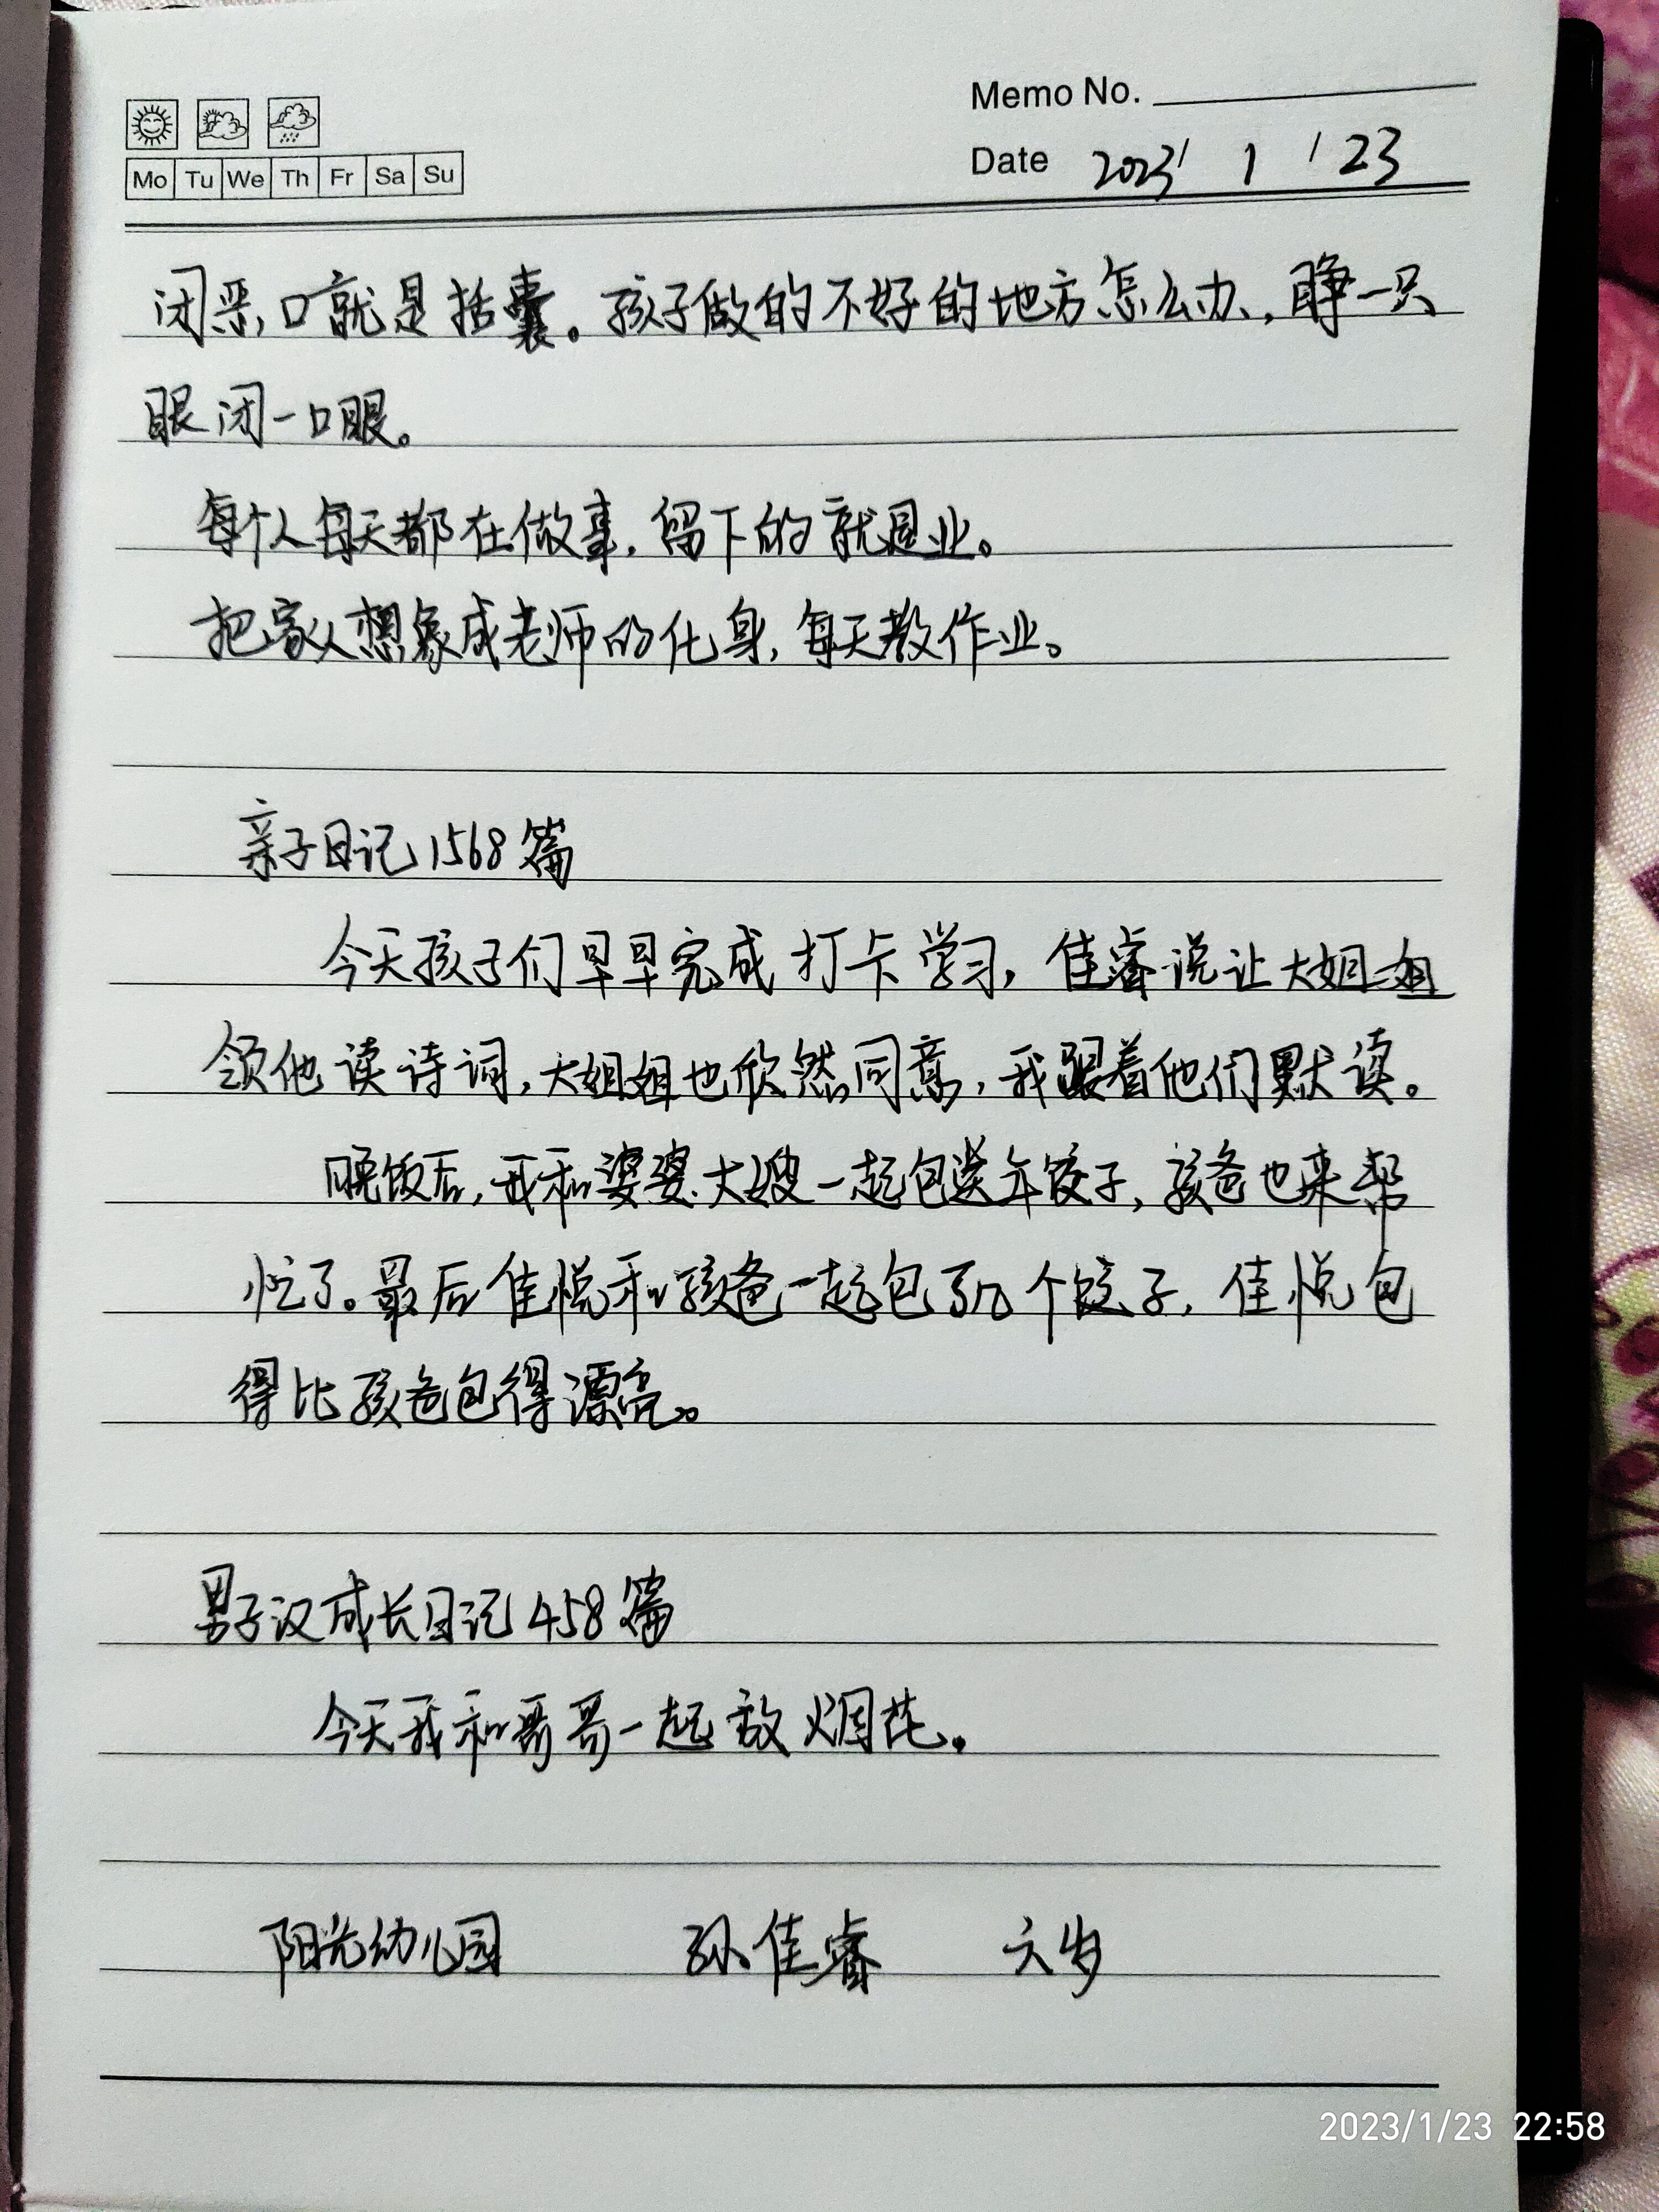 Memo No.
Mo Tu We Th Fr Sa Su
Date 2023/ 1 / 23
闭恶口就是括囊。孩子做的不好的地方怎么办,睁一只
眼闭一口眼。
每个人每天都在做事,留下的就是业。
把家人想象成老师的化身,每天教作业。
亲子日记1568篇
今天孩子们早早完成打卡学习,佳睿说让大姐姐
领他读诗词,大姐姐也欣然同意,我跟着他们默读。
晚饭后,我和婆婆、大嫂一起包送年饺子,孩爸也来帮
忙了。最后佳悦和孩爸一起包了几个饺子,佳悦包
得比孩爸包得漂亮。
男子汉成长日记458篇
今天我和哥哥一起放烟花。
阳光幼儿园 孙佳睿 六岁
2023/1/23 22:58